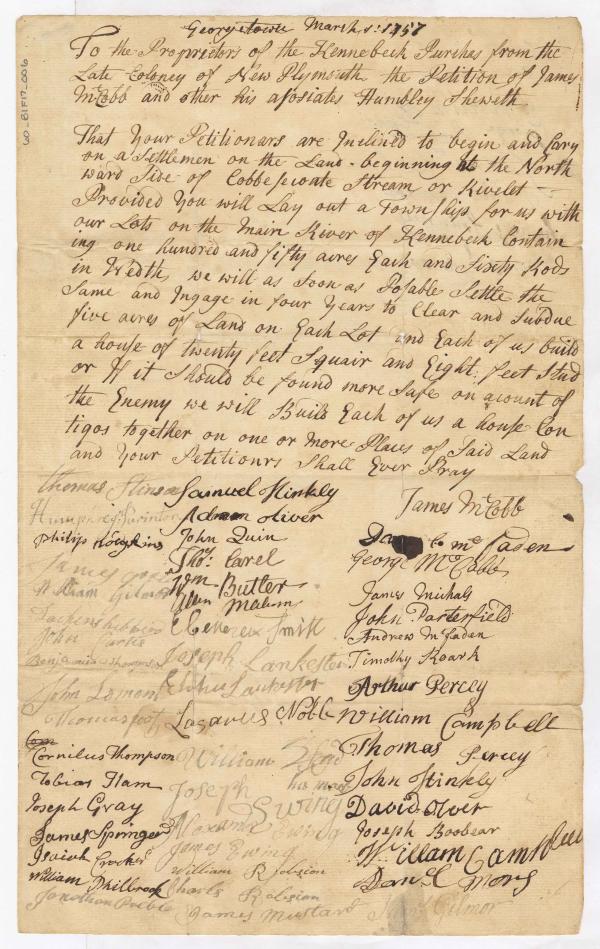 Georgetown March 1: 1757
To the Proprietors of the Kennebeck Purches from the
Late Coloney of New Plymouth the Petition of James
McCobb and other his asosiates Humbley Sheweth
That Your Petitionars are Inclined to begin and Cary
on a Settlemen on the Land beginning at the North
ward Side of Cobbesecoate Stream or Rivelet
Provided You will Lay out a Township for us with
our Lots on the Main River of Kennebeck Contain
ing one hundred and fifty acres Each and Sixty Rods
in Wedth, we will as Soon as Posable Settle the
Same and Ingage in four Years to Clear and Subdue
five acres of Land on Each Lot and Each of us build
a house of twenty feet Squair and Eight feet Stud
or If it Should be found more Safe on acount of
the Enemy we will Build Each of us a house Con
tigos together on one or more Places of Said Land
and Your Petitionrs Shall Ever Pray
James McCobb
George McCobb
James Michals
John Parterfield
Andrew McFaden
Timothy Roark
Arthur Percey
William Campbell
Thomas Percey
John Stinkly
David Olver
Joseph Boobear
William Cambell
Daniel Mors
Gilmor
Samuel Hinkly
Adam oliver
John Quin
Thos. Carel
Wm Butler
Allen Malum
Ebenezer Smith
Joseph Lankester
Elihu Lankester
Lazarus Noble
William
Joseph
his mark
Ewing
Alexand Ewing
James Ewing
William Robision
Charls Robision
James Mustard
thomas Stinson
Humphrey Purinton
Philip Hodgkins
James
William Gilmor
John
Benjamin Thompson
John Lemont
thomas foot
Cornilius Thompson
Tobias Ham
Joseph Gray
James Springer
Isaiah Crocker
William Philbrook
Jonathan Preble
30-B1F17-006